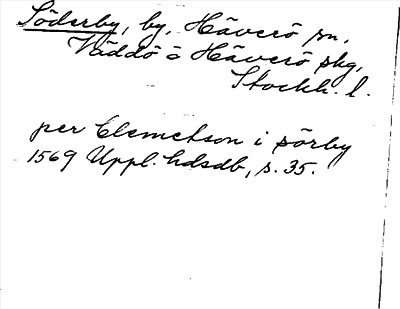 Söderby, by, Häverö sn,
Väddö o Häverö skg,
Stockh. l.
per Clemetson i sörby
1569 Uppl. hdsdb, s. 35.